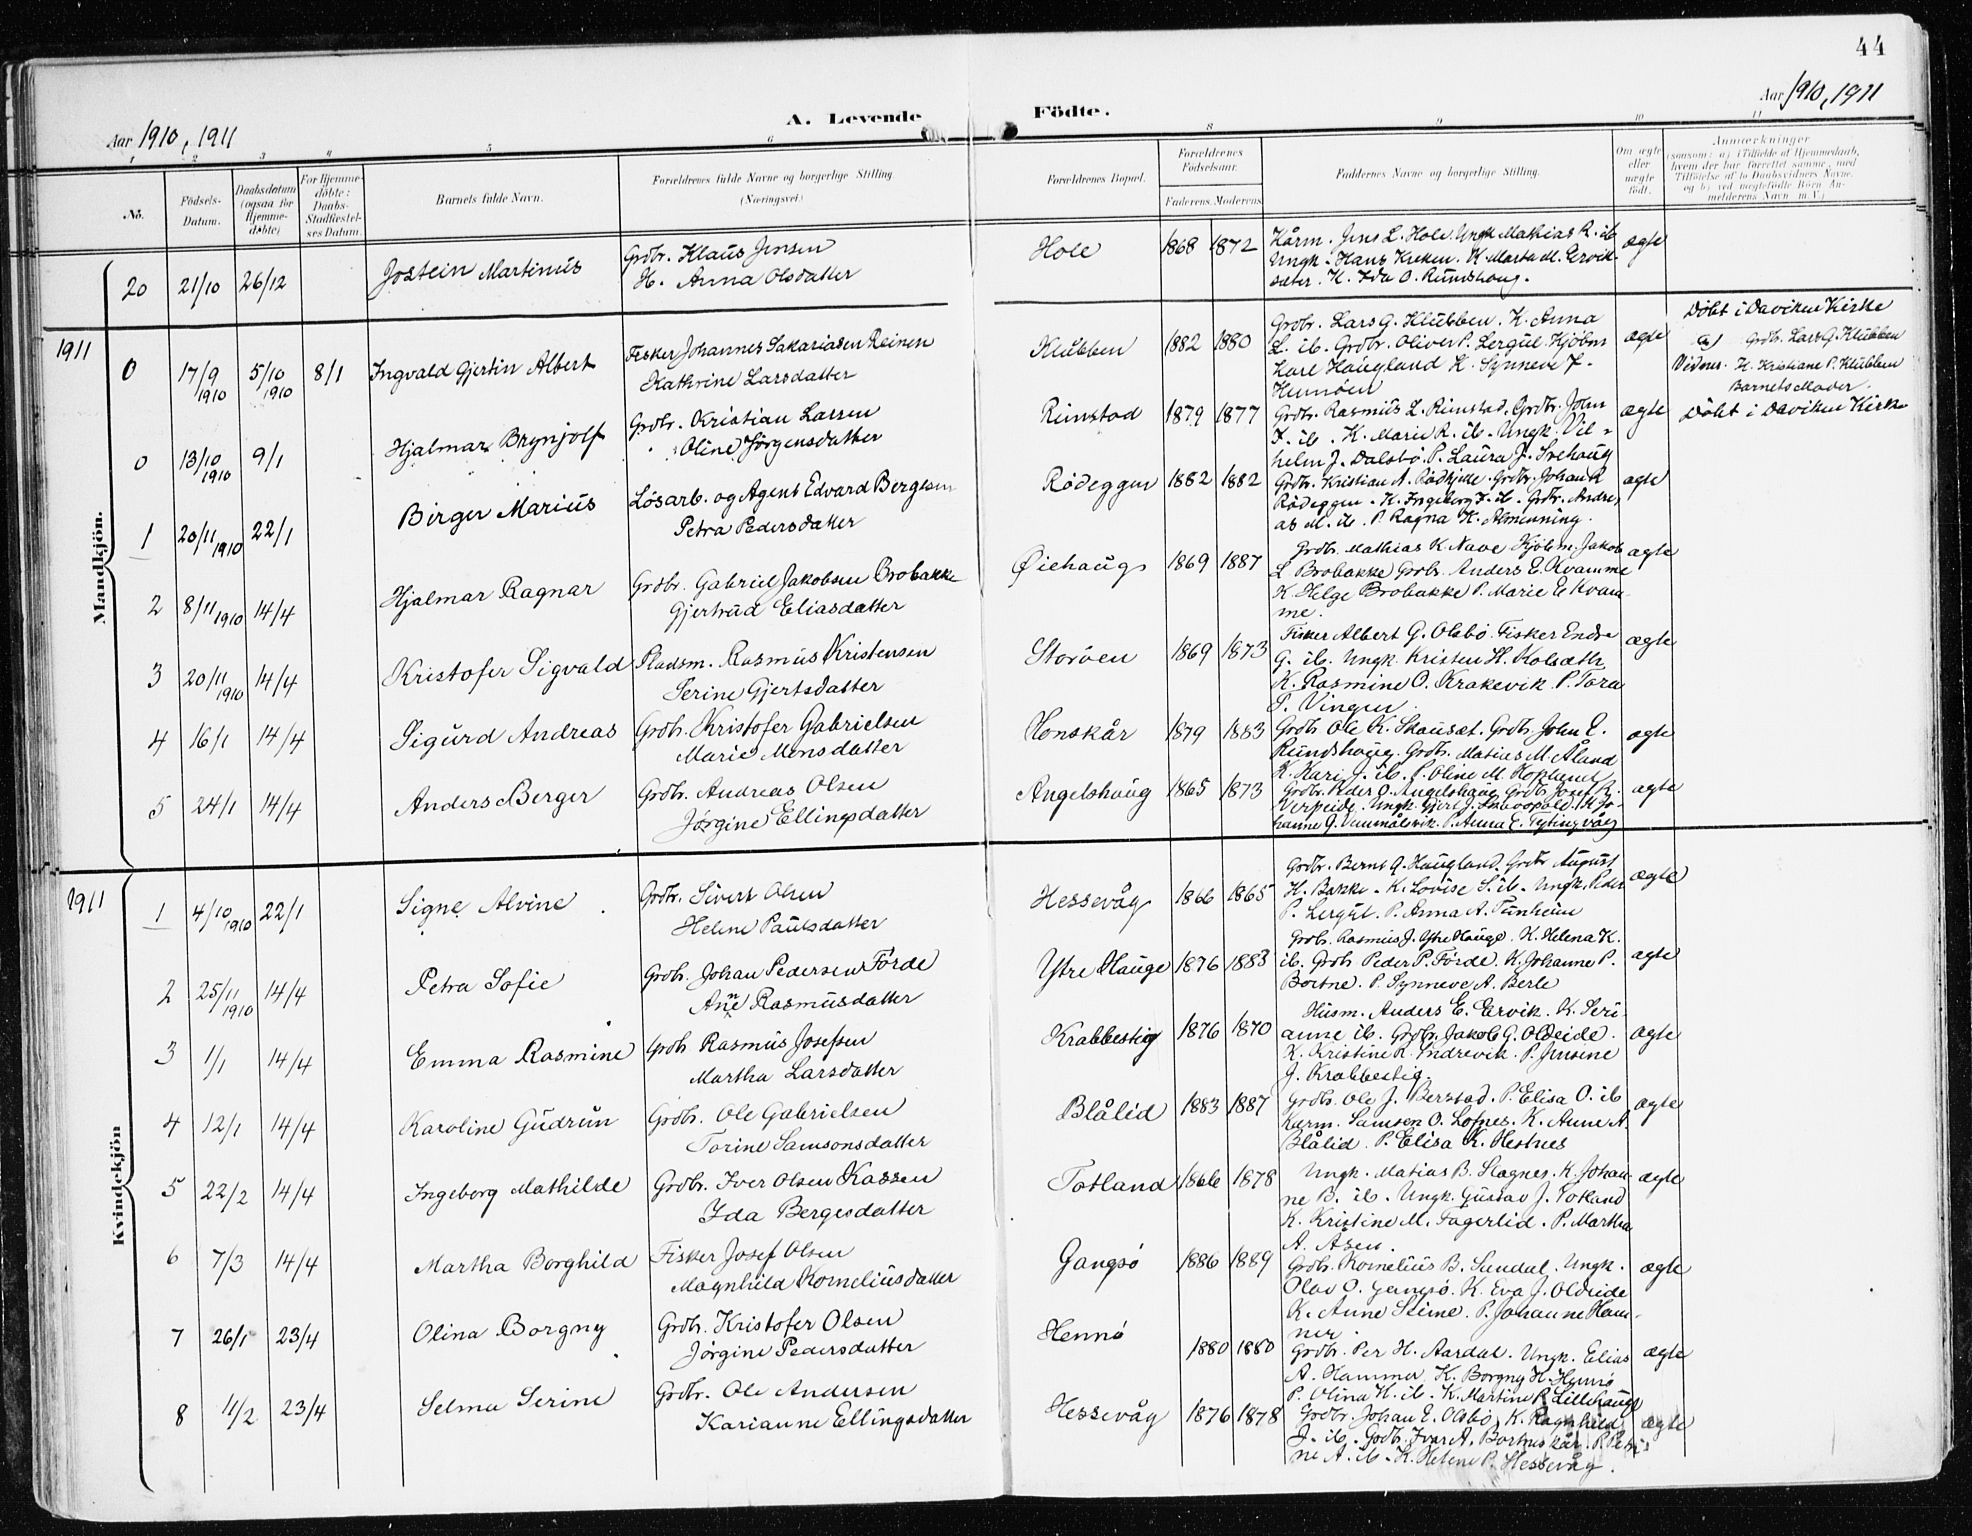 44
Aar 1910, 1911
A. Levende Födte.
Aar 1910, 1911
1 2 3 4 5 6 8 9 10 11
No.
Födsels-Datum.
Daabsdatum (ogsaa for Hjemmedöbte)
For Hjemmedöbte: Daabs-Stadfæstelses Datum.
Barnets fulde Navn.
Forældrenes fulde Navne og borgerlige Stilling.
(Næringsvei.)
Forældrenes Bopæl.
Forældrenes Födselsaar.
Faderens. Moderens.
Faddernes Navne og borgerlige Stilling.
Om ægte eller uægte födt.
Anmærkninger
Mandkjön.
20 21/10 26/12 Jostein Martinus Grdbr. Klaus Jensen
H. Anna Olsdatter
Hole 1868 1872 Kårm. Jens L. Hole. Ungk Mathias R. ib
Ungk. Hans Kirken. K. Marta M. Ervik-
sæter. K. Ida O. Rundshoug. ægte
1911
0 17/9 1910 5/10 1910 8/1 Ingvald Gjertin Albert Fisker Johannes Sakariasen Reinen
Kathrine Larsdatter
Klubben 1882 1880 Grdbr. Lars G. Klubben. K. Anna
L. ib. Grdbr. Oliver P. Lergul Kjöbm
Karl Haugland K. Synneve J.
Hennöen ægte
Döbt i Daviken Kirke
a) Grdb. Lars G. Klubben
Vidner. H. Kristiane P. Klubben
Barnets Moder.
0 13/10 1910 9/1 Hjalmar Brynjolf Grdbr. Kristian Larsen
Oline Jörgensdatter
Rimstad 1879 1877 Grdbr. Rasmus L. Rimstad. Grdbr. John
I. ib. K. Marie R. ib. Ungk. Vil-
helm J. Dalsbö. P. Laura J. Irehoug ægte Döbt i Daviken Kirke
1 20/11 1910 22/1 Birger Marius Lösarb. og Agent Edvard Bergesen
Petra Pedersdatter
Rödeggen 1882 1882 Grdbr. Kristian A. Rödhjelle. Grdbr. Johan R
Rödeggen. K. Ingeborg I. ib. Grdbr. Andre-
as M. ib. P. Ragna K. Almenning. ægte
2 8/11 1910 14/4 Hjalmar Ragnar Grdbr. Gabriel Jakobsen Brobakke
Gjertrud Eliasdatter
Øiehaug 1869 1887 Grdb. Mathias K. Nave Kjöbm. Jakob
L Brobakke Grdbr. Anders E. Kvamme
K. Helge Brobakke P. Marie E Kvam-
me. ægte
3 20/11 1910 14/4 Kristofer Sigvald Pladsm. Rasmus Kristensen
Serine Gjertsdatter
Storöen 1869 1873 Fisker Albert G. Olsbö. Fisker Endre
G. ib. Ungk. Kristen H. Kolsæth
K. Rasmine O. Krakevik. P. Tora
S. Vingen ægte
4 16/1 14/4 Sigurd Andreas Grdb. Kristofer Gabrielsen
Marie Monsdatter
Honskår 1879 1883 Grdb. Ole K. Skausæt. Grdb. John E.
Rundshoug. Grdb. Matias M. Åland
K. Kari J. ib. P. Oline M. Kopland ægte
5 24/1 14/4 Anders Berger Grdbr. Andreas Olsen
Jørgine Ellingsdatter
Angelshaug 1865 1873 Grdbr. Peder O. Angelshaug Grdb. Josef R.
Verpeide. Ungk. K Jo-
hanne Q. Vemmelsvik. P. Anna E. Tytingvåg ægte
1911
Kvindekjön
1 4/10 1910 22/1 Signe Alvine Grdbr. Sivert Olsen
Helene Paulsdatter
Hessevåg 1866 1865 Grdbr. Bernt A. Haugland. Grdbr August
H. Bakke. K. Lovise S. ib. Ungk. Peder
P. Lergul. P. Anna A. Tunheim ægte
2 25/11 1910 14/4 Petra Sofie Grdb. Johan Pedersen Förde
Anne Rasmusdatter
Ytre Hauge 1876 1883 Grdb. Rasmus J. Ytre Hauge. K. Helena K.
ib. Grdb Peder P. Förde. K. Johanne P.
Bortne. P. Synneve A. Berle ægte
3 1/1 14/4 Emma Rasmine Grdb Rasmus Josefsen
Martha Larsdatter
Krabbestig 1876 1870 Husm. Anders E. Ervik. K. Seri-
anne ib. Grdbr. Jakob G. Oldeide.
K. Kristine R. Endrevik. P. Jensine
J. Krabbestig. ægte
4 12/1 14/4 Karoline Gudrun Grdbr. Ole Gabrielsen
Torine Samsonsdatter
Blålid 1883 1887 Grdb. Ole J. Berstad. P. Elisa O. ib
Kårm. Samson O. Lofnes. K. Anne A.
Blålid. P. Elisa K. Hestnes ægte
5 22/2 14/4 Ingeborg Mathilde Grdbr. Iver Olsen Kassen
Ida Bergesdatter
Totland 1866 1878 Ungk. Matias B. Slagnes. K. Johan-
ne B. ib. Ungk. Gustav J. Totland
K. Kristine M. Fagerlid. P. Martha
A. Åsen. ægte
6 7/3 14/4 Martha Borghild Fisker Josef Olsen
Magnhild Korneliusdatter
Gangsø 1886 1889 Grdb. Kornelius B. Sundal. Ungk.
Olav O. Gangsø. K. Eva J. Oldeide
K. Anne Steine. P. Johanne Ham-
mer. ægte
7 26/1 23/4 Olina Borgny Grdb. Kristofer Olsen
Jørgine Pedersdatter
Hennø 1880 1880 Grdbr. Per H. Aardal. Ungk. Elias
A. Hammer. K. Borgny H. Hennø
P. Olina K. ib. K. Martine P. Lillehaug ægte
8 11/2 23/4 Selma Serine Grdbr. Ole Andersen
Karianne Ellingsdatter
Hessevåg 1876 1878 Grdbr. Johan E. Olsbø. K. Ragnhild
J. ib. Grdb. Ivar A. Bortneskår. P. Petri-
ne A. ib. K. Helene P. Hessevåg. ægte